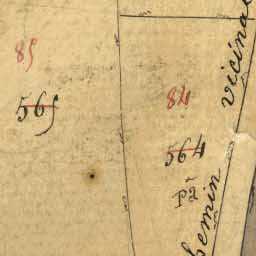 85
565
84
564
P2
hemin vicinal